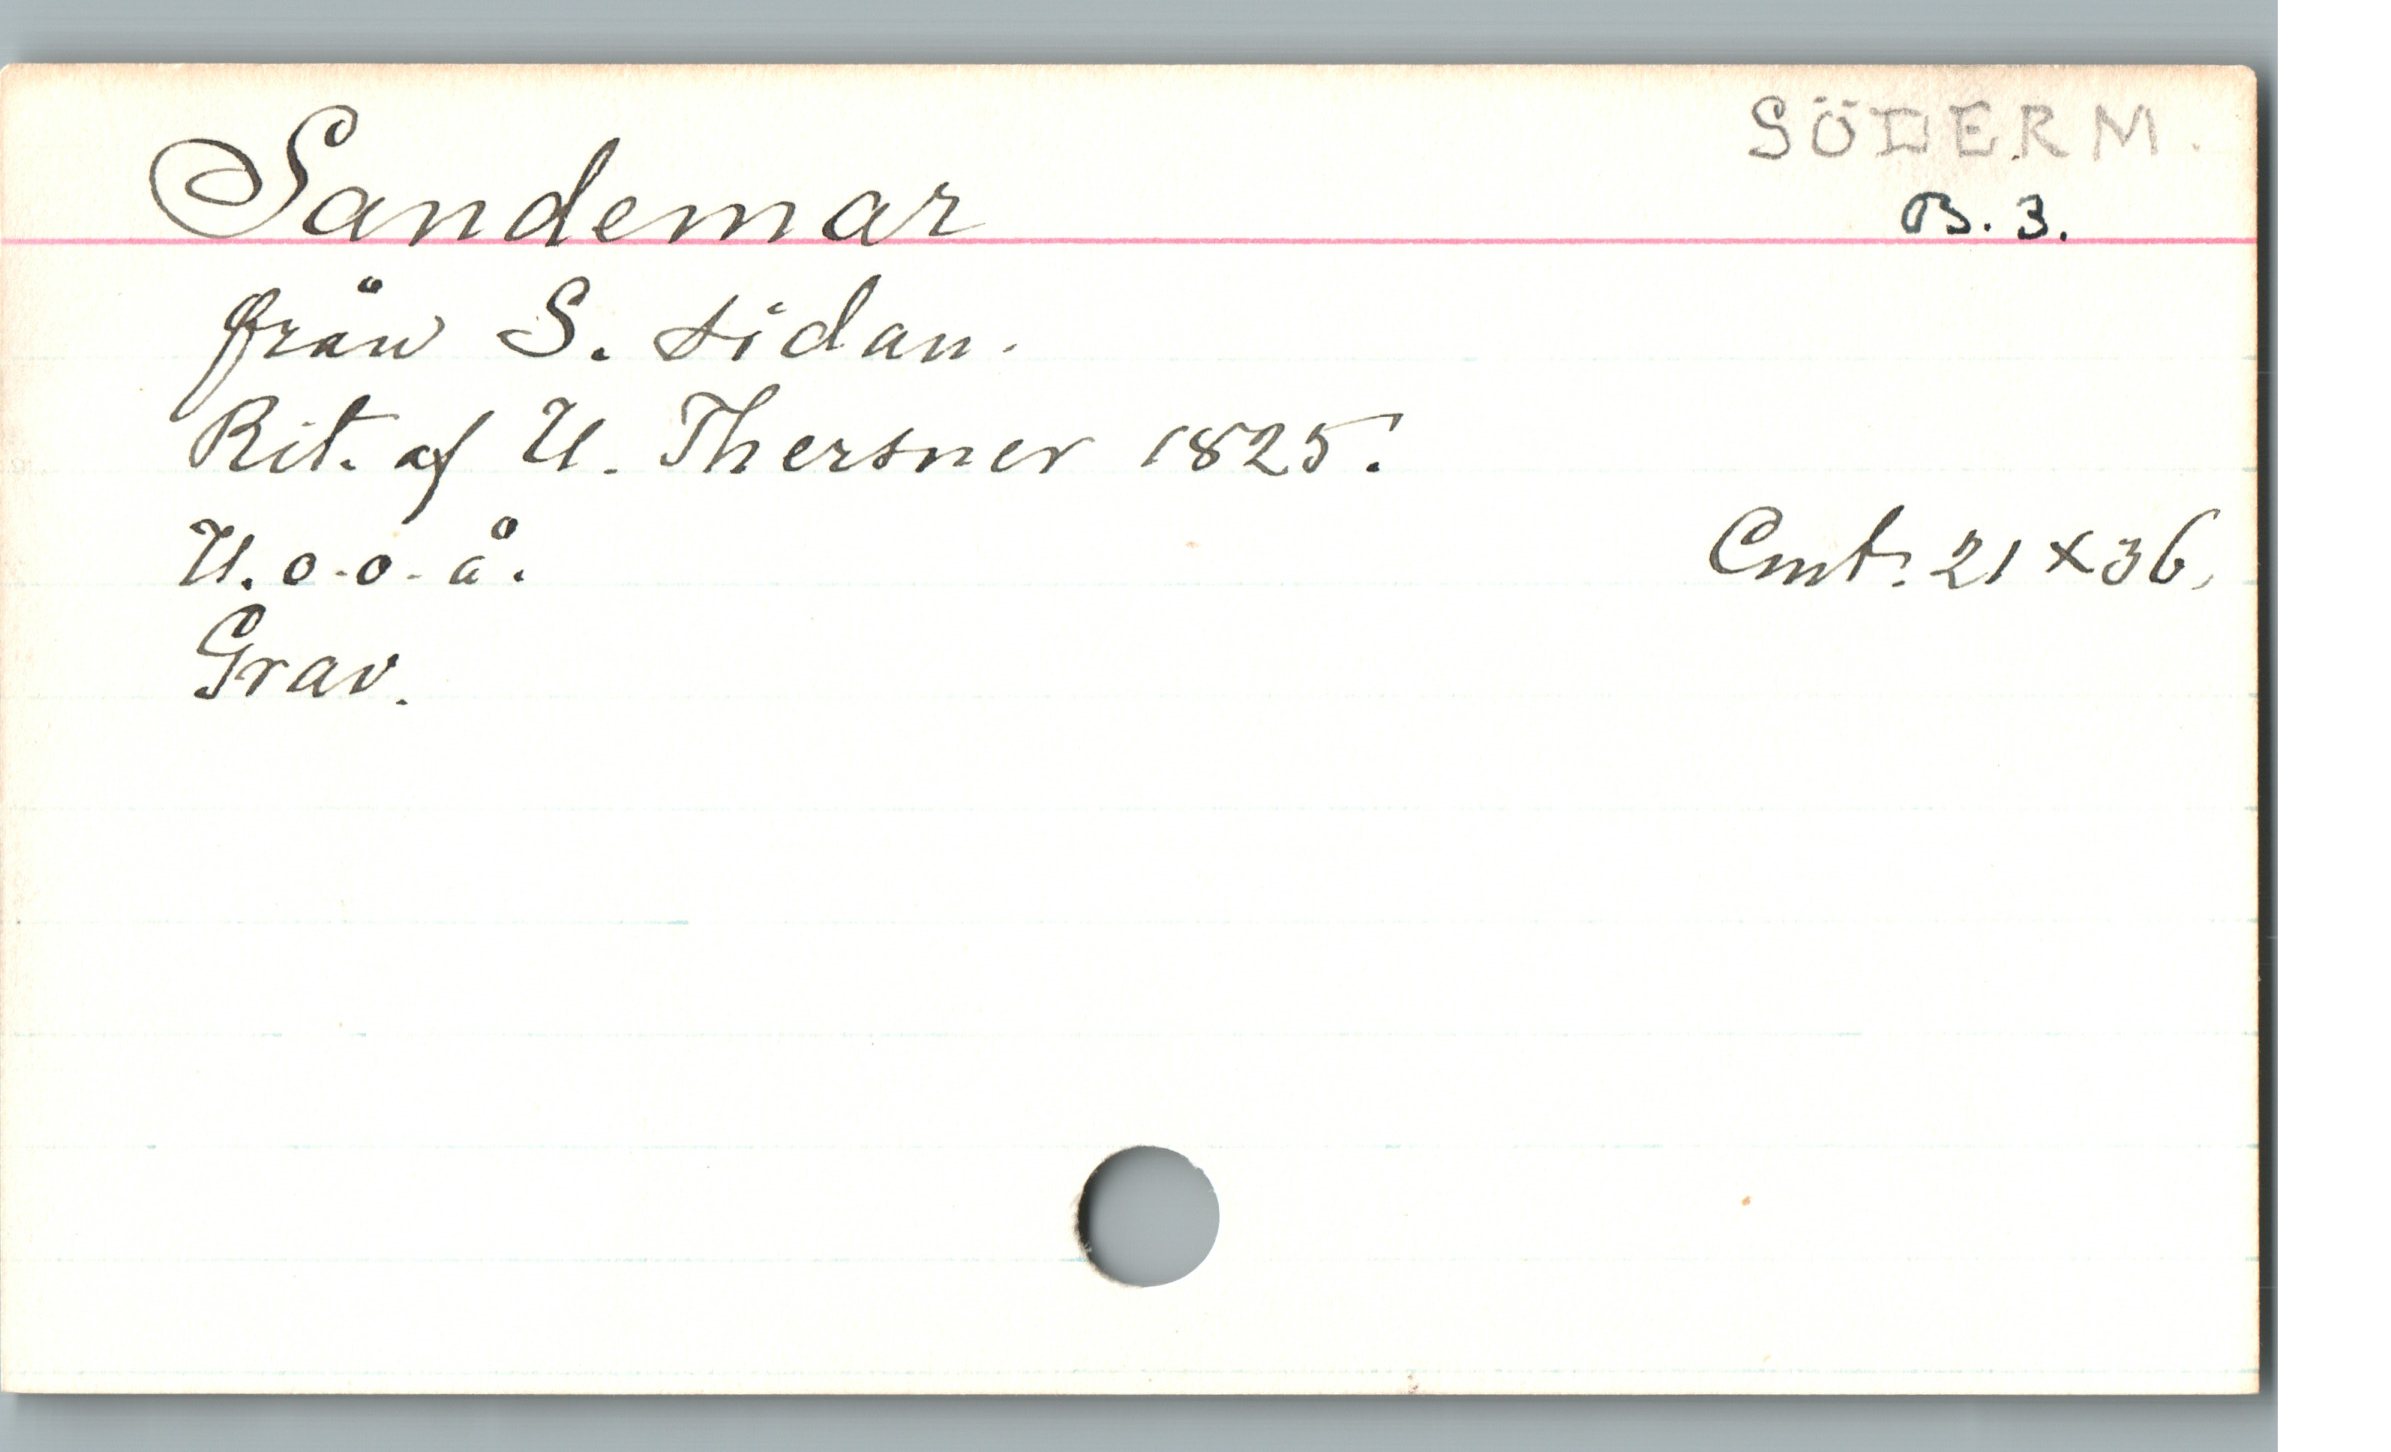 SÖDERM.
Sandemar
B. 3.
från S. sidan.
Rit. af U. Thersner 1825.
U. o. o. å.
Cmt. 21 x 36.
Grav.